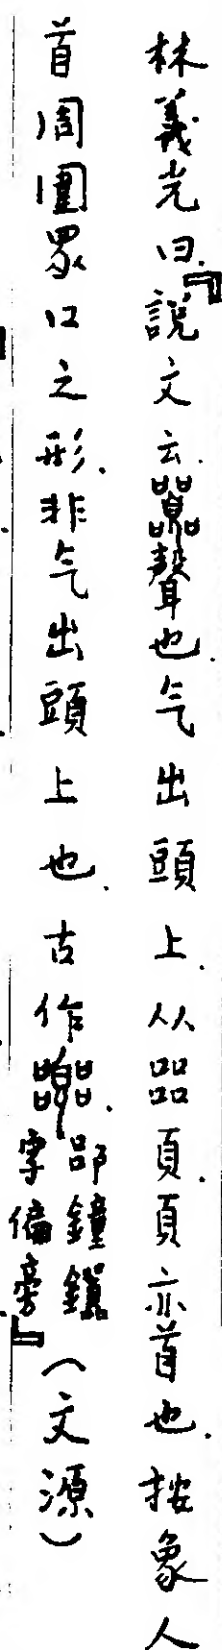 林義光曰.『說文云.嚻聲也.气出頭上.从㗊頁.頁亦首也.按象人
首周圍眾口之形.非气出頭上也.古作.郘鐘鐈字偏旁』(文源)